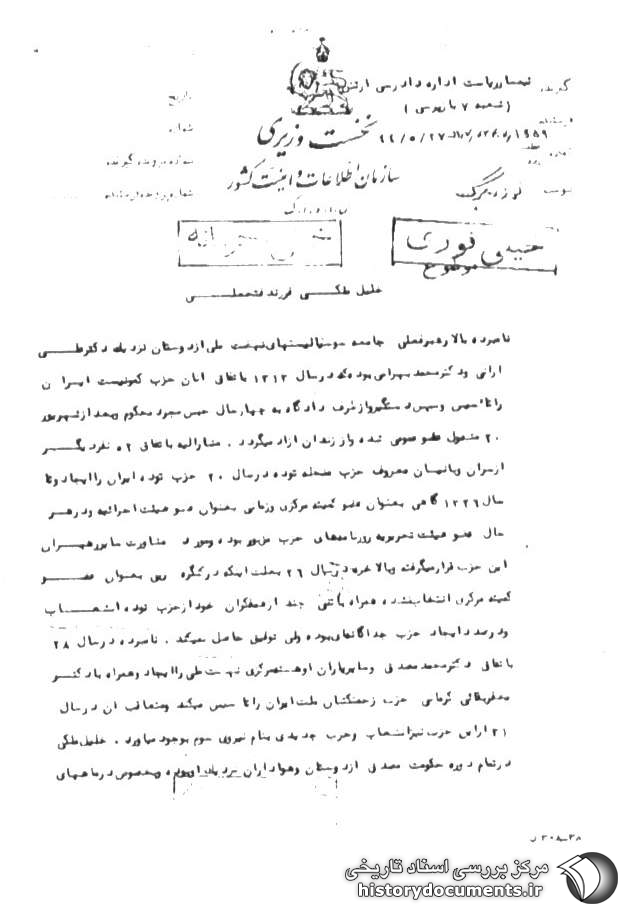 گیرنده تیمسار ریاست اداره دادرسی ارتش
(شعبه ۷ بازپرسی)
تاریخ
شماره
نخست وزیری
سازمان اطلاعات و امنیت کشور
شماره پرونده گیرنده
پیوست
خیلی فوری
موضوع
خلیل ملکی فرزند فتحعلی
نامبرده بالا رهبر فعلی جامعه سوسیالیستهای نهضت ملی از دوستان نزدیک دکتر تقی
ارانی و دکتر محمد بهرامی بوده که در سال ۱۳۱۲ باتفاق آنان حزب کمونیست ایران
را تاسیس و سپس دستگیر و از طرف دادگاه به چهار سال حبس مجرد محکوم و بعد از شهریور
۲۰ مشمول عفو عمومی شده و از زندان آزاد میگردد . مشارالیه باتفاق ۵۲ نفر دیگر
از سران و بانیان معروف حزب منحله توده در سال ۲۰ حزب توده ایران را ایجاد و تا
سال ۱۳۲۶ گاهی بعنوان عضو کمیته مرکزی و زمانی بعنوان عضو هیئت اجرائیه و در هر
حال عضو هیئت تحریریه روزنامه‌های حزب مزبور بوده و مورد مشاورت سایر رهبران
این حزب قرار میگرفته و بالاخره در سال ۲۶ بعلت اینکه در کنگره بعنوان عضو
کمیته مرکزی انتخاب نشده همراه با تنی چند از همفکران خود از حزب توده انشعاب
و درصدد ایجاد حزب جداگانه‌ای بوده ولی توفیق حاصل نمیکند . نامبرده در سال ۲۸
باتفاق دکتر محمد مصدق و سایر یاران او هسته مرکزی نهضت ملی را ایجاد و همراه با دکتر
مظفر بقائی کرمانی حزب زحمتکشان ملت ایران را تاسیس میکند و متعاقب آن در سال
۳۱ از این حزب نیز انشعاب و حزب جدیدی بنام نیروی سوم بوجود میاورد . خلیل ملکی
در تمام دوره حکومت مصدق از دوستان و هواداران نزدیک او بوده و بخصوص در ماههای
مرکز بررسی اسناد تاریخی
historydocuments.ir